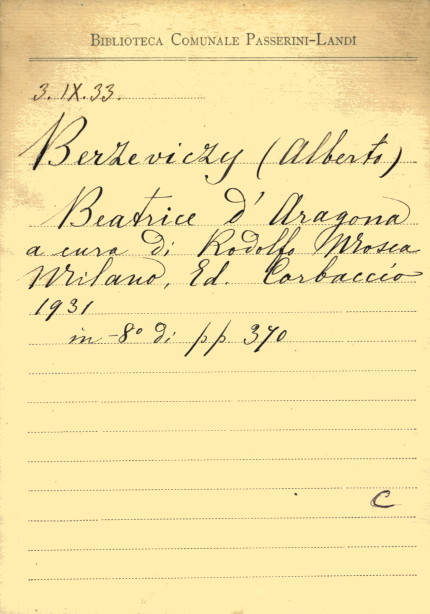 BIBLIOTECA COMUNALE PASSERINI-LANDI
3. IX. 33.
Berzeviczy (Alberto)
Beatrice d'Aragona
a cura di Rodolfo Mosca
Milano, Ed. Corbaccio
1931
in-8º di pp. 370
C